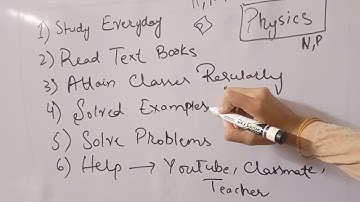 Physics
N, P
1) Study Everyday
2) Read Text Books
3) Attain Classes Regularly
4) Solved Examples
5) Solve Problems
6) Help → YouTube, Classmate,
Teacher